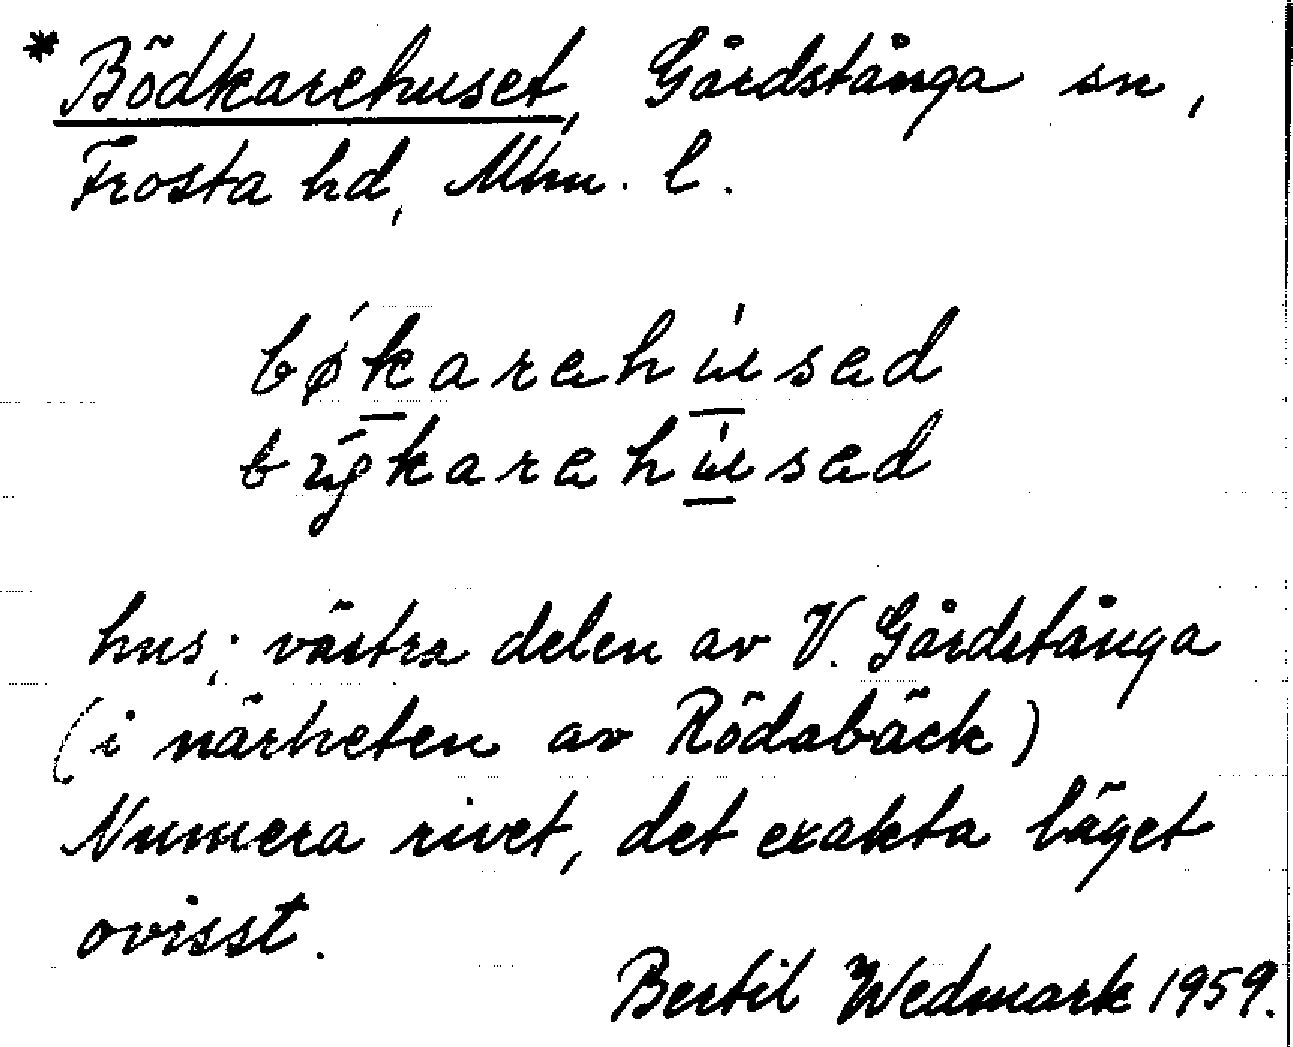 * Bödkarehuset, Gårdstånga sn,
Frosta hd, Mhu. l.
bǿkarahúsad
búgkarahúsad
hus; västra delen av V. Gårdstånga
(i närheten av Rödabäck)
Numera rivet, det exakta läget
ovisst.
Bertil Wedmark 1959.